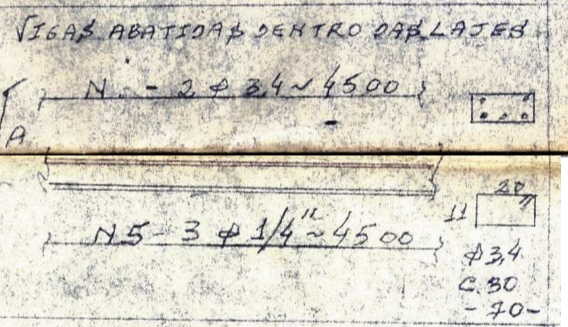 VIGAS ABATIDAS DENTRO DAS LAJES
N. - 2 ϕ 3,4 ~ 4500
A
N5 - 3 ϕ 1/4" ~ 4500
20
11
ϕ 3,4
C. 30
- 70 -